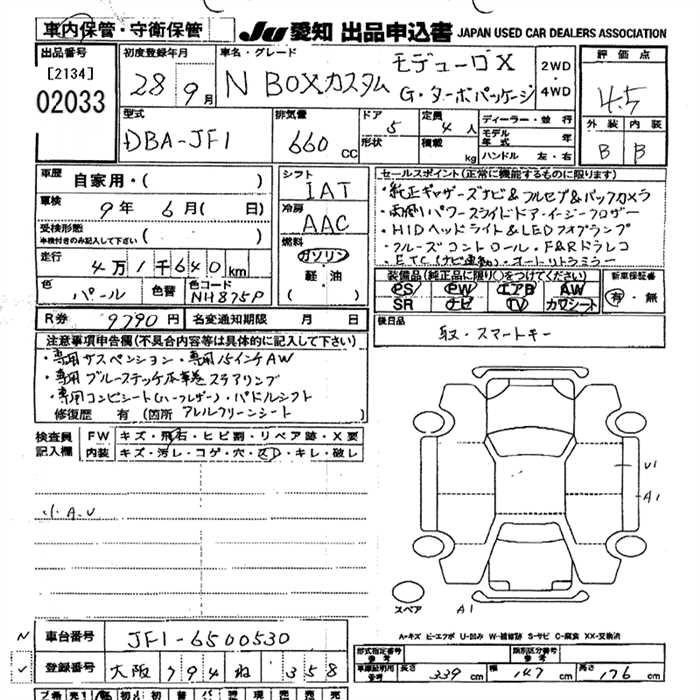 車内保管・守衛保管
JU 愛知 出品申込書 JAPAN USED CAR DEALERS ASSOCIATION
出品店
[2134]
02033
初度登録年月
28年9月
車名・グレード
N BOXカスタム モデューロX
G・ターボパッケージ
2WD
4WD
評価点
4.5
外装 内装
B B
型式
DBA-JF1
排気量
660 CC
ドア 5
形状
定員 4人
積載 kg
ディーラー・並行
モデル年式 年
ハンドル 左・右
車歴 自家用・( )
車検 9年 6月( 日)
受検形態
車検付きのみ記入して下さい ( )
走行 4万1千640km
色 パール 色替 色コード NH875P
シフト IAT
冷房 AAC
燃料 ガソリン
軽・油
( )
セールスポイント(正常に機能するものに限ります)
・純正ギャザーズナビ&フルセグ&バックカメラ
・両側パワースライドドア・イージークローザー
・HIDヘッドライト&LEDフォグランプ
・クルーズコントロール・F&Rドラレコ
・ETC(ナビ連動)・オートリトラミラー
装備品(純正品に限り○をつけてください)
PS PW エアB AW
SR ナビ TV カワシート
新車保証書
有・無
R券 9790円 名変通知期限 月 日
後日品
取・スマートキー
注意事項申告欄(不具合内容等は具体的に記入して下さい)
・専用サスペンション・専用15インチAW
・専用ブルーステッチ本革巻ステアリング
・専用コンビシート(ハーフレザー)・パドルシフト
修復歴 有 (箇所 アレルクリーンシート
検査員記入欄
FW キズ・飛石・ヒビ割・リペア跡・X要
内装 キズ・汚レ・コゲ・穴・スレ・キレ・破レ
小A.U
U1
A1
スペア
A1
A-キズ E-エクボ U-凹み W-補修跡 S-サビ C-腐食 XX-交換済
車台番号 JF1-6500530
登録番号 大阪 794 ね 358
型式指定番号 参考
類別区分番号 参考
車庫証明用参考 長さ 339cm 幅 147cm 高さ 176cm